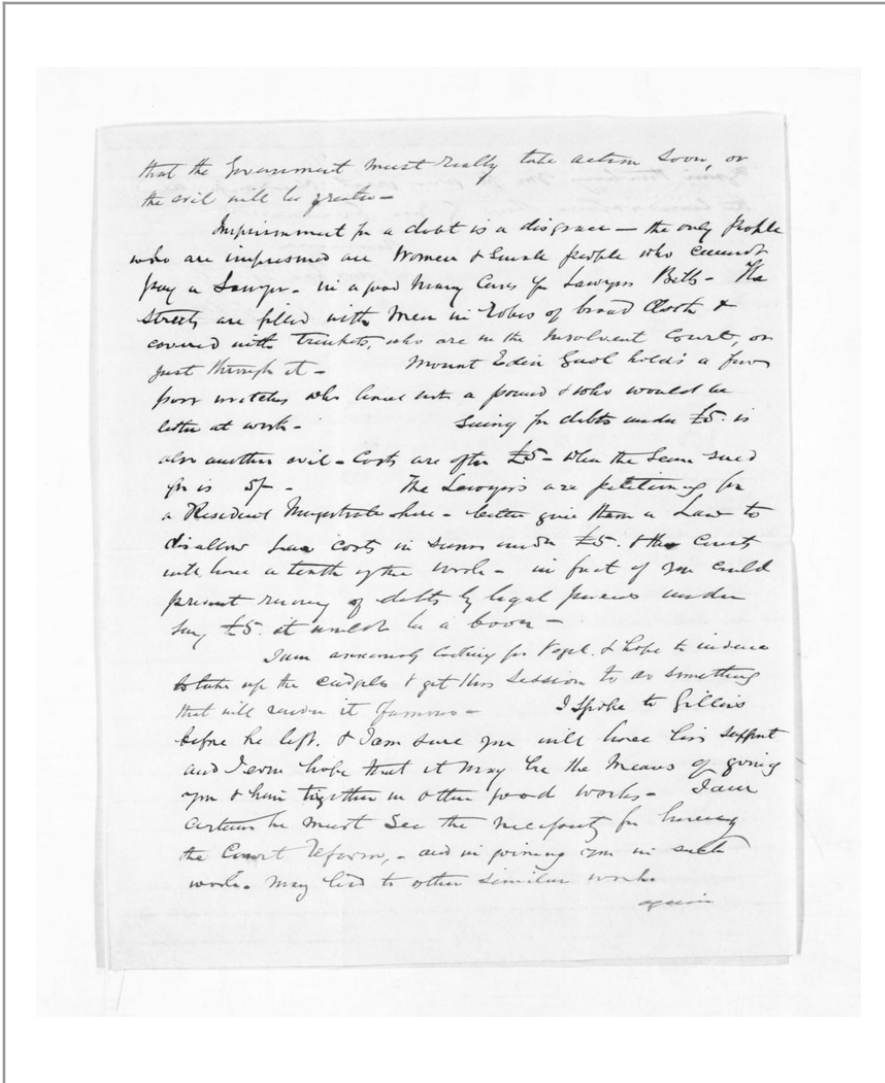 that the Government must really take action soon, or
the evil will be greater—
Imprisonment for a debt is a disgrace — the only people
who are imprisoned are Women & Small people who cannot
pay a Lawyer. in a good many cases for Lawyers Bills — The
streets are filled with Men in Robes of broad Cloth &
covered with trinkets, who are in the Insolvent Court, or
just through it — Mount Eden Gaol holds a few
poor wretches who have not a pound & who would be
better at work — Suing for debts under £5. is
also another evil — Costs are often £5 — when the Sum sued
for is 5/- — The Lawyers are petitioning for
a Resident Magistrate here — better give them a Law to
disallow Law costs in sums under £5. & the Courts
will have a tenth of the work — in fact if you could
prevent recovery of debts by legal process under
say £5. it would be a boon —
I am anxiously looking for Vogel. & hope to induce
to take up the cudgels & get this Session to do something
that will render it famous — I spoke to Gillies
before he left. & I am sure you will have his support
and I even hope that it may be the means of
you & him together in other good works — I am
certain he must see the necessity for having
the Court Reform, — and in joining you in such
work. may lead to other similar work
again